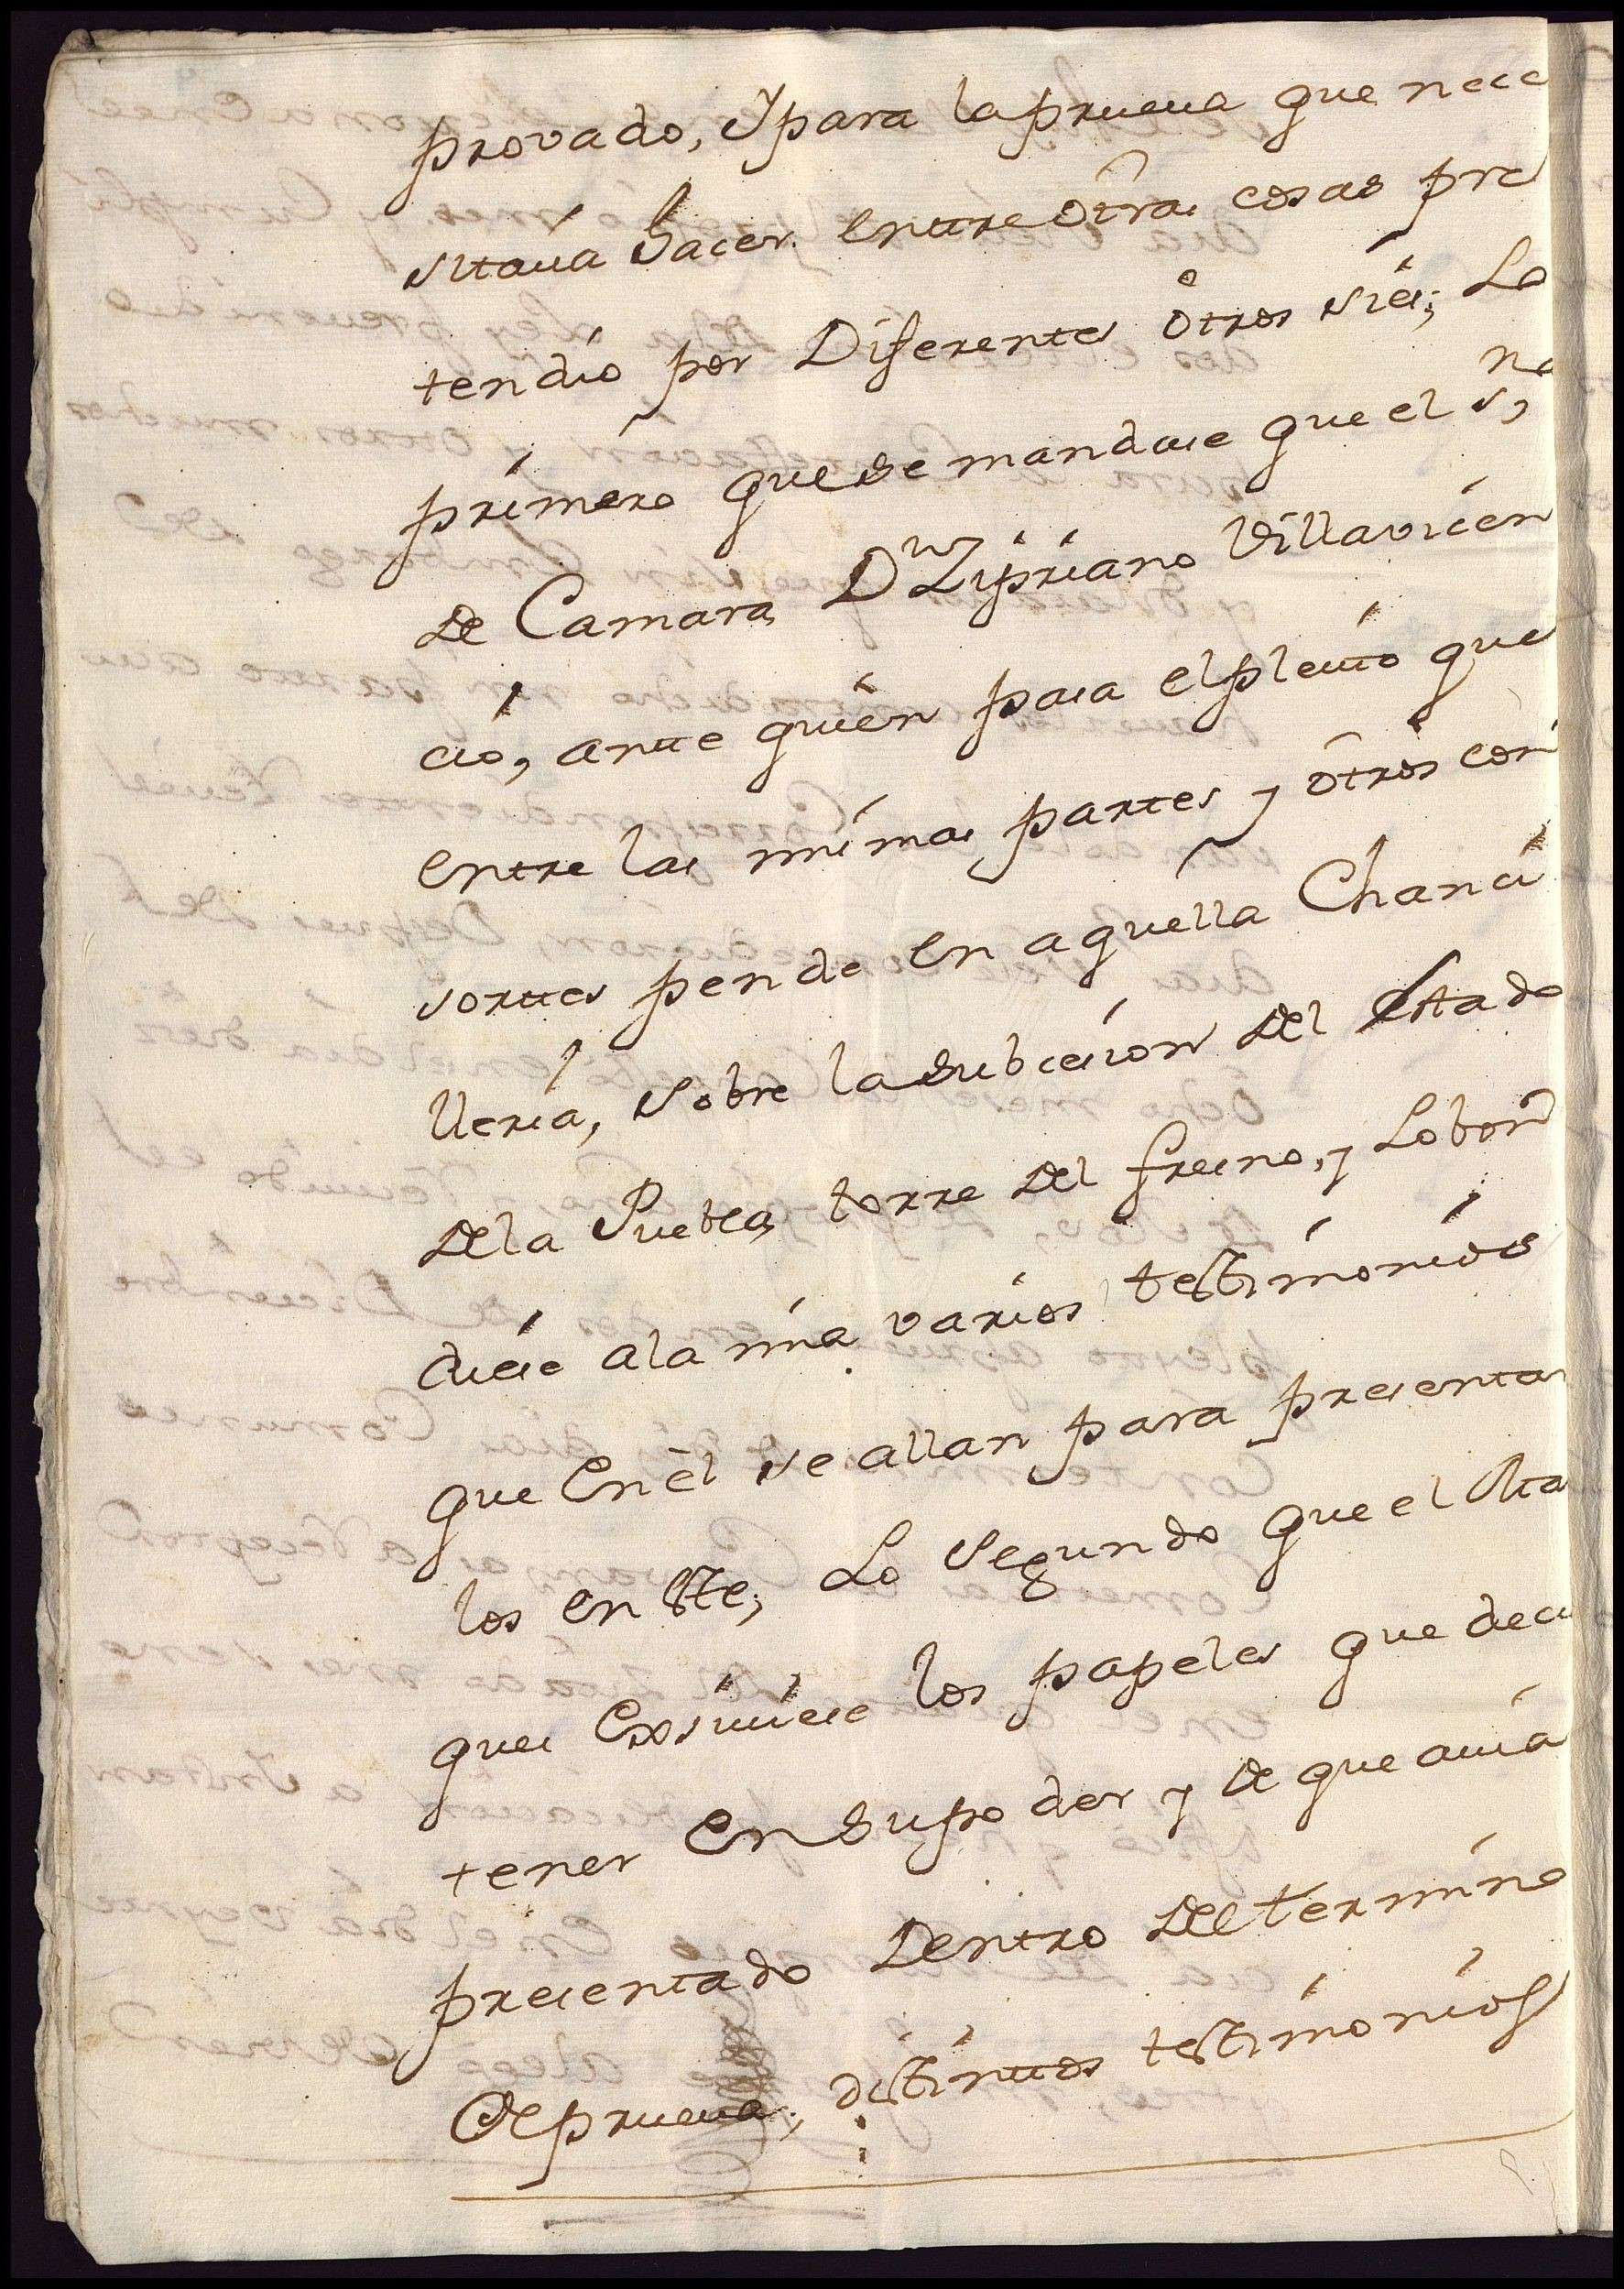 provado, Y para la prueua que nece
sitaua hacer. entre otras cosas pre
tendio por Diferentes otros sies; Lo
primero que se mandase que el s,no
de Camara Dn Zipriano Villavicen
cio, ante quien pasa el pleito que
entre las mimas partes y otros con
sortes pende en aquella Chanci
lleria, sobre la subcesion del estado
de la Puebla, torre del fresno, y Lobon
diese a la mia varios testimonios
que en el se allan para presentar
los en este; Lo segundo que el Mar
ques exsiuiese los papeles que deci
tener en su poder y de que auia
presentado Dentro del termino
de prueua; distintos testimonios